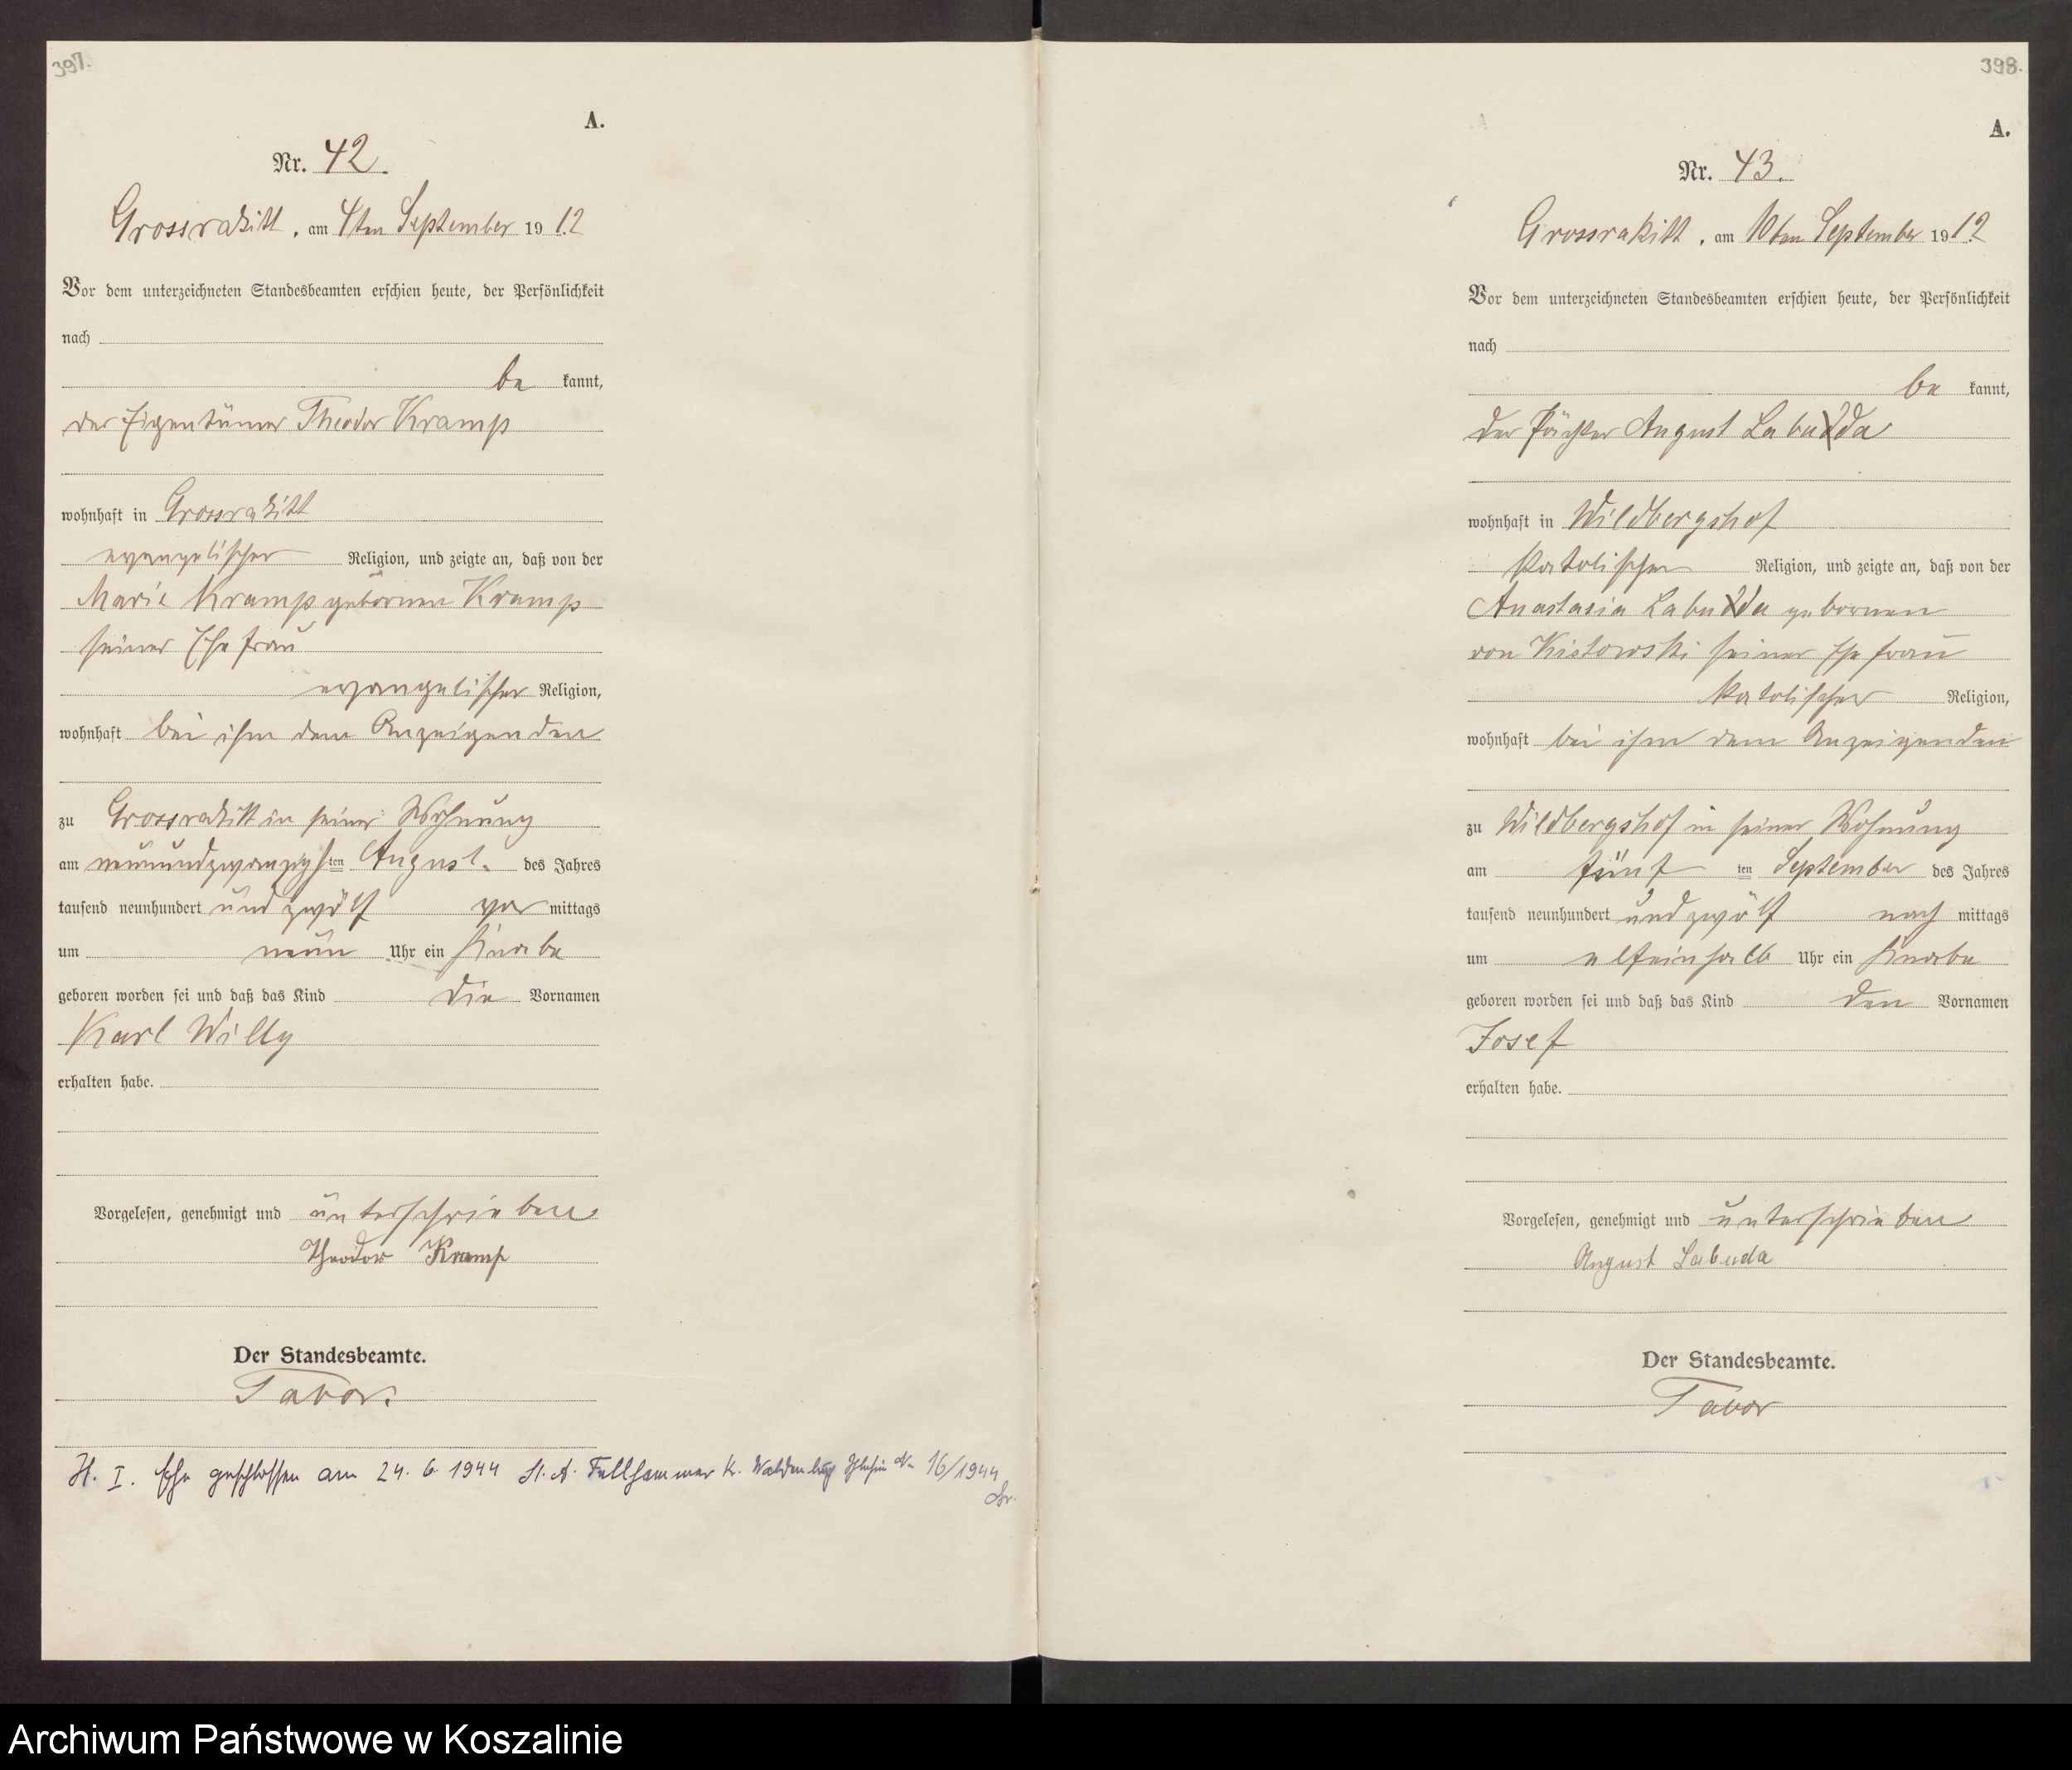 397.
A.
Nr. 42.
Grossrakitt, am 4ten September 1912
Vor dem unterzeichneten Standesbeamten erschien heute, der Persönlichkeit
nach
be kannt,
der Eigentümer Theodor Kramp
wohnhaft in Grossrakitt
evangelischer Religion, und zeigte an, daß von der
Marie Kramp gebornen Kramp
seiner Ehefrau
evangelischer Religion,
wohnhaft bei ihm dem Anzeigenden
zu Grossrakitt in seiner Wohnung
am neunundzwanzigsten August des Jahres
tausend neunhundert und zwölf vor mittags
um neun Uhr ein Knabe
geboren worden sei und daß das Kind die Vornamen
Karl Willy
erhalten habe.
Vorgelesen, genehmigt und unterschrieben
Theodor Kramp
Der Standesbeamte.
Tabor.
H. I. Ehe geschlossen am 24. 6. 1944 St. A. Fellhammer K. Waldenburg Schlesien Nr. 16/1944
398.
A.
Nr. 43.
Grossrakitt, am 10ten September 1912
Vor dem unterzeichneten Standesbeamten erschien heute, der Persönlichkeit
nach
be kannt,
der Pächter August Labudda
wohnhaft in Wildbergshof
katolischer Religion, und zeigte an, daß von der
Anastasia Labudda gebornen
von Kistowski seiner Ehefrau
katolischer Religion,
wohnhaft bei ihm dem Anzeigenden
zu Wildbergshof in seiner Wohnung
am fünf ten September des Jahres
tausend neunhundert und zwölf nach mittags
um elfeinhalb Uhr ein Knabe
geboren worden sei und daß das Kind den Vornamen
Josef
erhalten habe.
Vorgelesen, genehmigt und unterschrieben
August Labuda
Der Standesbeamte.
Tabor
Archiwum Państwowe w Koszalinie